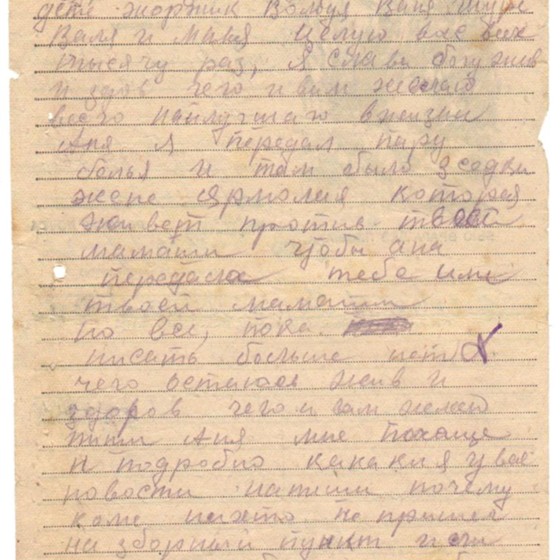 дети Жоржик Володя Ваня Шура
Валя и Маня целую вас всех
тысячу раз, я слава богу жив
и здов чего и вам желаю
всего наилучшаго в жизни
Аня я передал пару
белья и там было
жене Ярмолая которая
живет против твоей
мамаши чтобы она
передала тебе или
твоей мамаши
но все, пока.
писать больше нет
чего остаюся жив и
здоров чего и вам желаю
Аня мне почаще
и подробно какакия у вас
новости напиши почему
коме нихто не пришел
на зборный пункт и